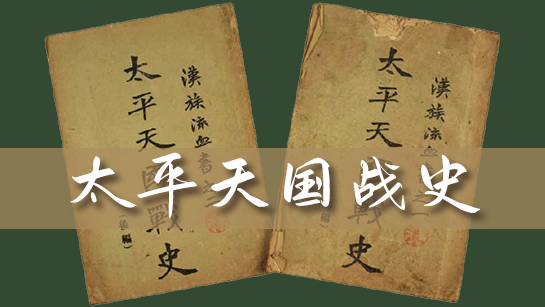 漢族流血書之
太平天國戰史
(後編)
漢族流血
太平天
戰史
太平天国战史